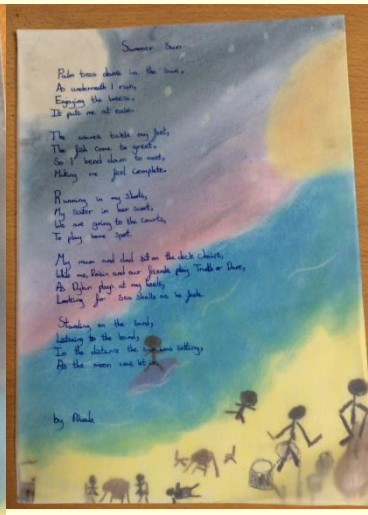 Summer Sun
Palm trees dance in the sun,
As underneath I run,
Enjoying the breeze,
It puts me at ease.
The waves tickle my feet,
The fish come to greet,
So I bend down to meet,
Making me feel complete.
Running in my shorts,
My sister in her skort,
We are going to the courts,
To play some sport.
My mum and dad sit on the deck chairs,
While me, Robin and our friends play Truth or Dare,
As Dylan plays at my heels,
Looking for Sea shells as he feels.
Standing on the sand,
Listening to the band,
In the distance the sun was setting,
As the moon was let
by